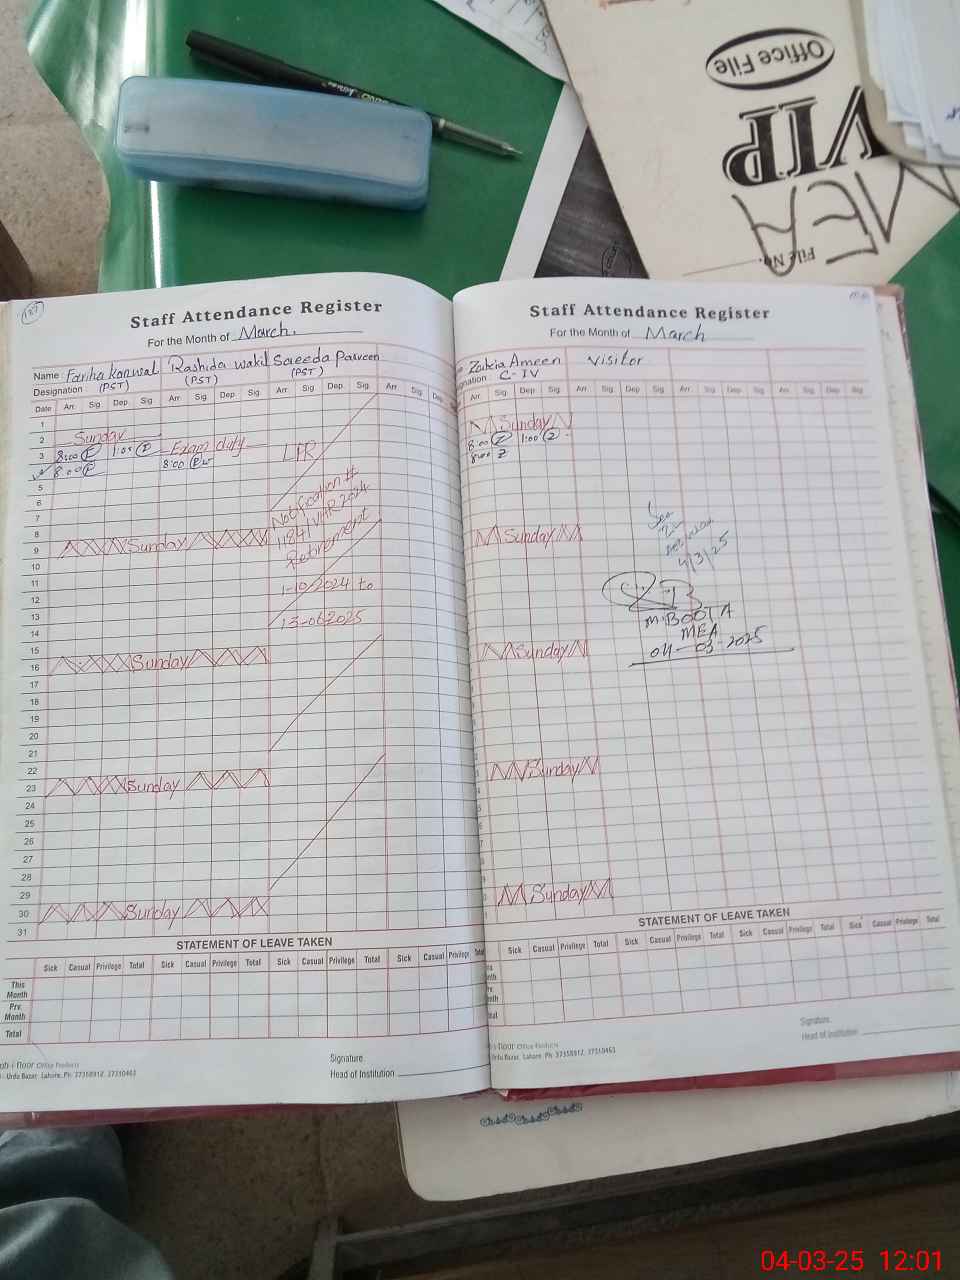 Office File
VIP
MEA
File No.
187
Staff Attendance Register
For the Month of March.
Name Fariha Kanwal Rashida wakil Saeeda Parveen
Designation (PST) (PST) (PST)
Date Arr. Sig. Dep. Sig. Arr. Sig. Dep. Sig. Arr. Sig. Dep. Sig. Arr. Sig. Dep.
1
2 Sunday
3 8:00 1:00 Exam duty LPR
4 8:00 8:00
5
6
7 Notification #
8 1184/VHR 2024
9 Sunday Retirement
10
11 1-10/2024 to
12
13 13-06-2025
14
15
16 Sunday
17
18
19
20
21
22
23 Sunday
24
25
26
27
28
29
30 Sunday
31
STATEMENT OF LEAVE TAKEN
Sick Casual Privilege Total Sick Casual Privilege Total Sick Casual Privilege Total Sick Casual Privilege Total
This Month
Prv. Month
Total
Signature
Head of Institution
oh-i-noor Office Products
Urdu Bazar, Lahore. Ph: 37358912, 37310463
Staff Attendance Register
For the Month of March
Zakia Ameen Visitor
gnation C-IV
Arr. Sig. Dep. Sig. Arr. Sig. Dep. Sig. Arr. Sig. Dep. Sig. Arr. Sig. Dep. Sig.
Sunday
8:00 1:00
8:00
Sunday
4/3/25
M.BOOTA
MEA
04-03-2025
Sunday
Sunday
Sunday
STATEMENT OF LEAVE TAKEN
Sick Casual Privilege Total Sick Casual Privilege Total Sick Casual Privilege Total Sick Casual Privilege Total
Signature
Head of Institution
i-noor Office Products
Urdu Bazar, Lahore. Ph: 37358912, 37310463
04-03-25 12:01